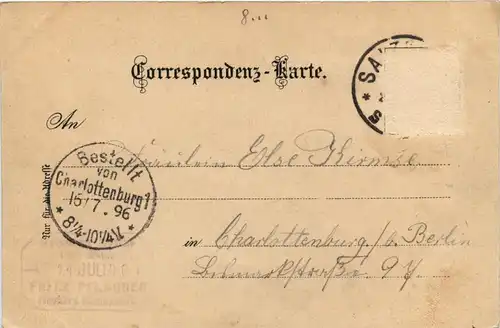 8.
Correspondenz-Karte.
SA
*
S
An
Fräulein Else Kirmse
Bestellt
von
Charlottenburg 1
15/7. 96
* 8¼-10¼V. *
Nur für die Adresse
in Charlottenburg / b. Berlin
97
JULI
FRITZ